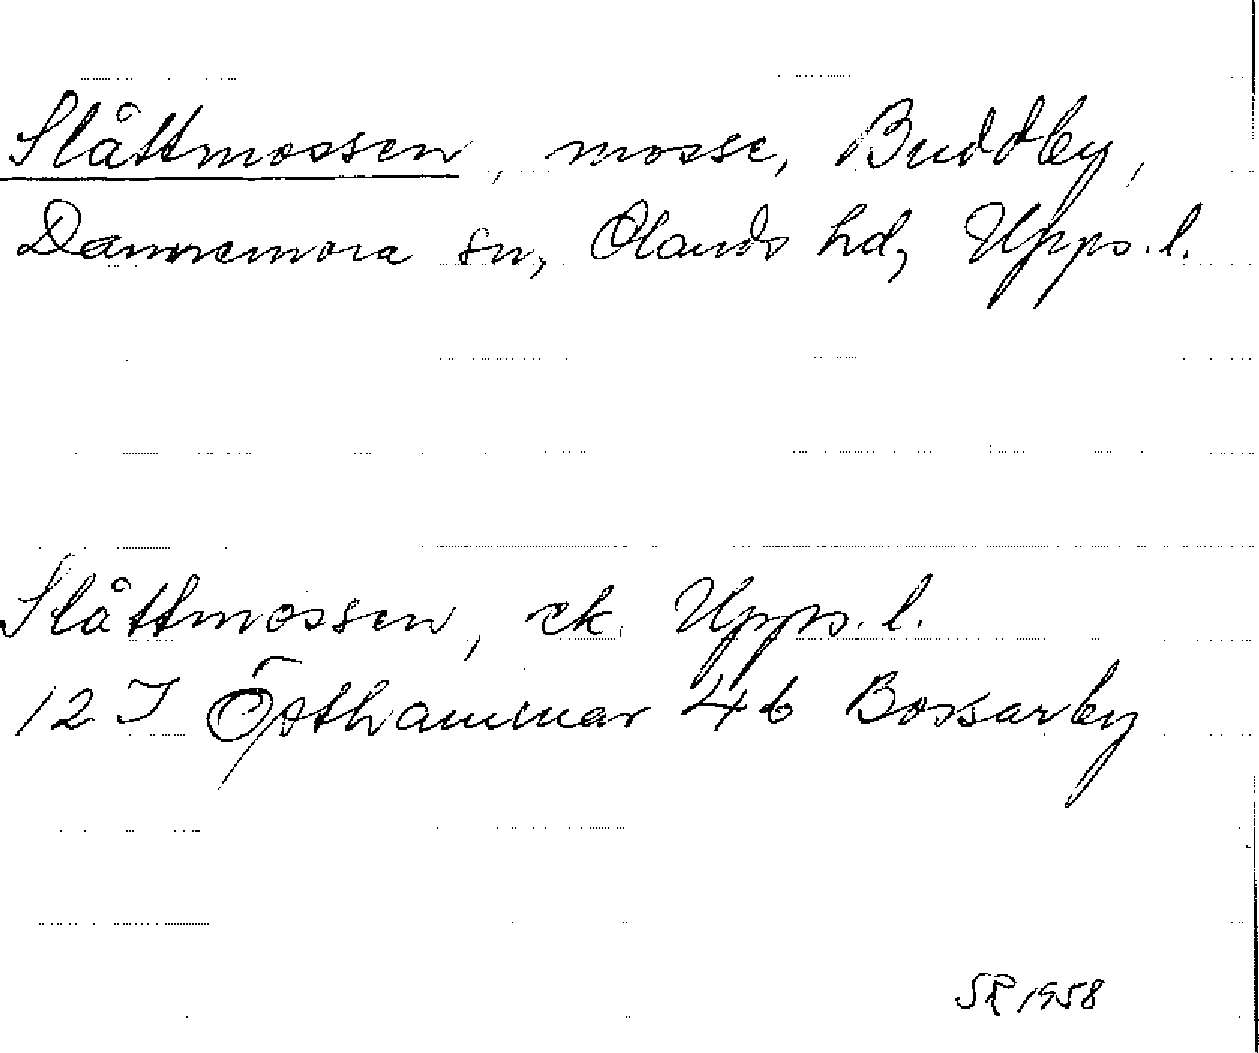 Slåttmossen, mosse, Buddby,
Dannemora sn, Olands hd, Upps. l.
Slåttmossen, ek. Upps. l.
12 I Östhammar 4b Bossarby
SR 1958